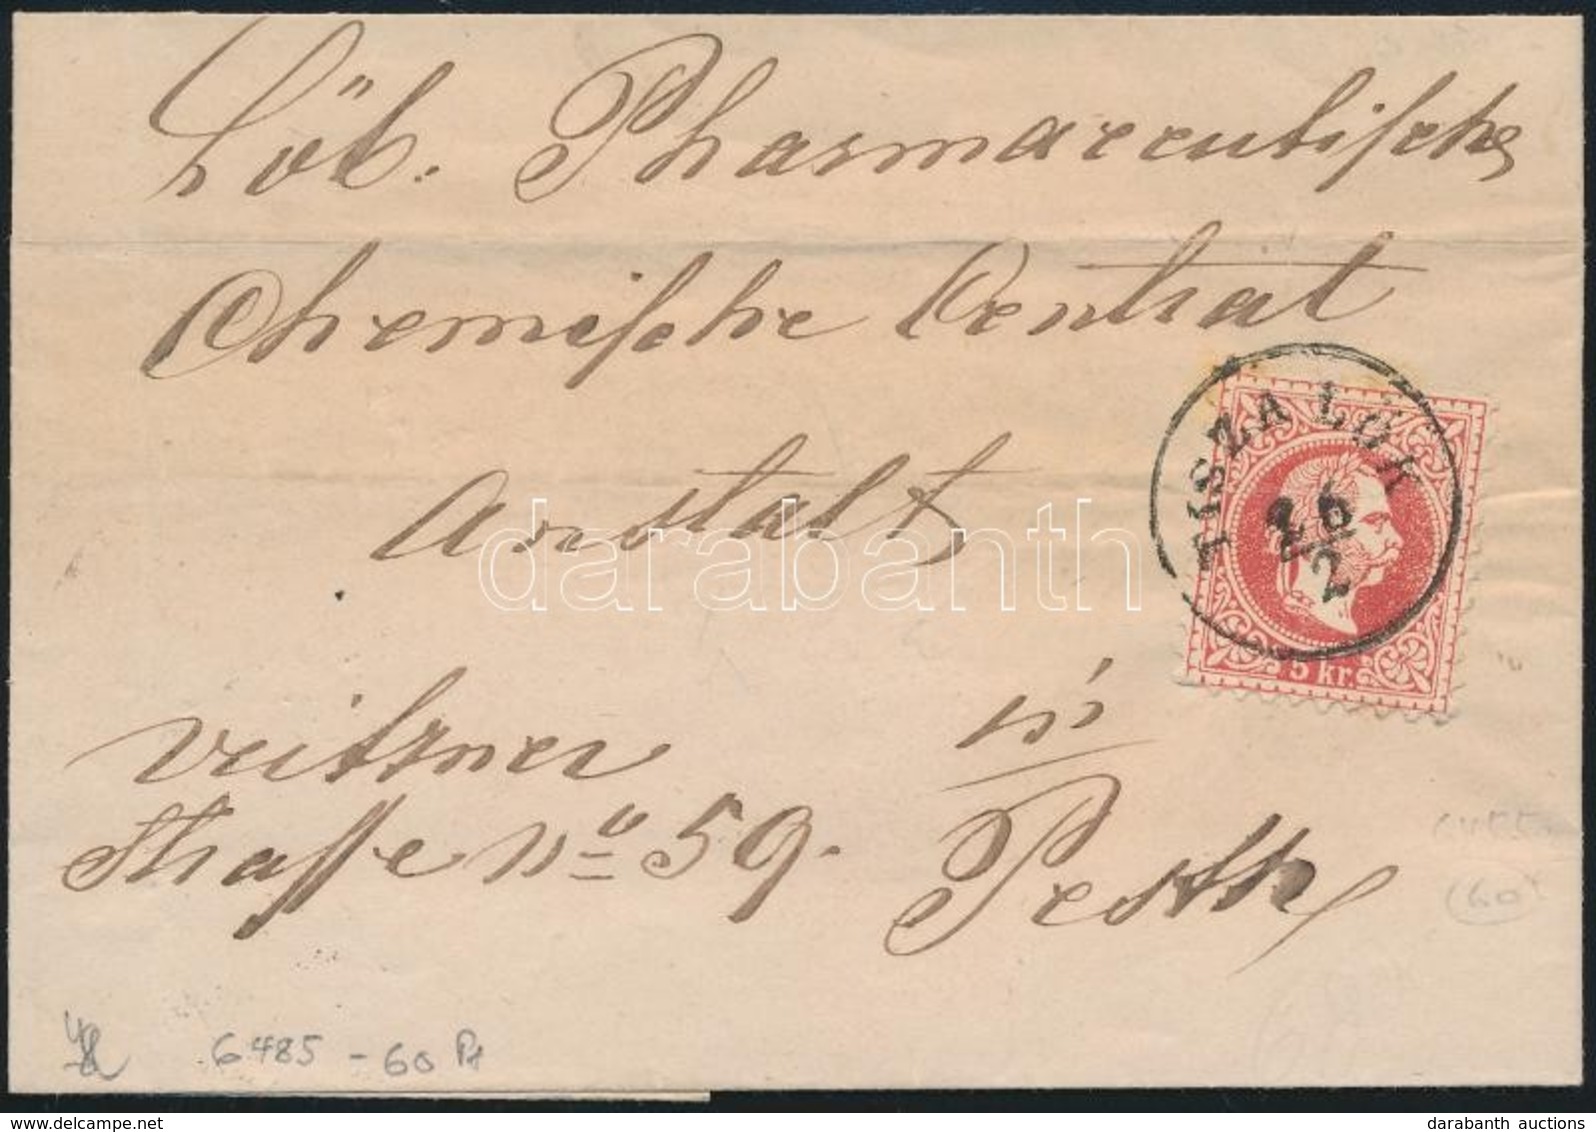 Löb. Pharmaceutische
Chemische Central
TISZA LÖK
26
2
Anstalt
darabanth
5 kr.
veitzner
in
Strasse No 59.
Pesth
(60)
6485 - 60 Pf
delcampe.net
darabanth auctions